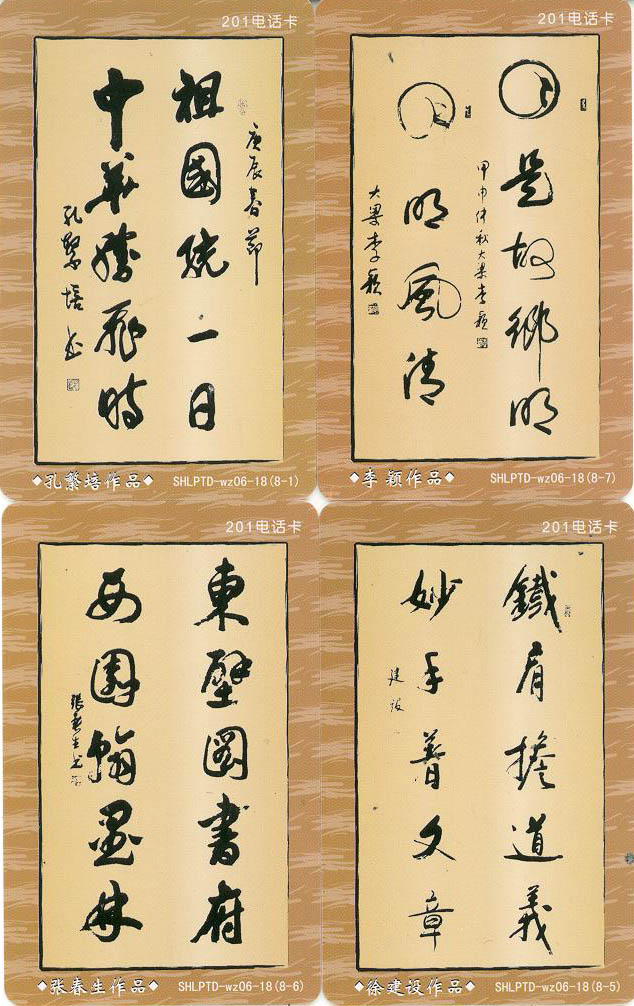 201电话卡
庚辰春節
祖國統一日
中華騰飛時
孔繁培書
◆孔繁培作品◆ SHLPTD-wz06-18(8-1)
201电话卡
月是故鄉明
甲申仲秋大梁李颖
月明風清
大梁李颖
◆李颖作品◆ SHLPTD-wz06-18(8-7)
201电话卡
東壁圖書府
西園翰墨林
張春生書
◆张春生作品◆ SHLPTD-wz06-18(8-6)
201电话卡
鐵肩擔道義
妙手著文章
建设
◆徐建设作品◆ SHLPTD-wz06-18(8-5)